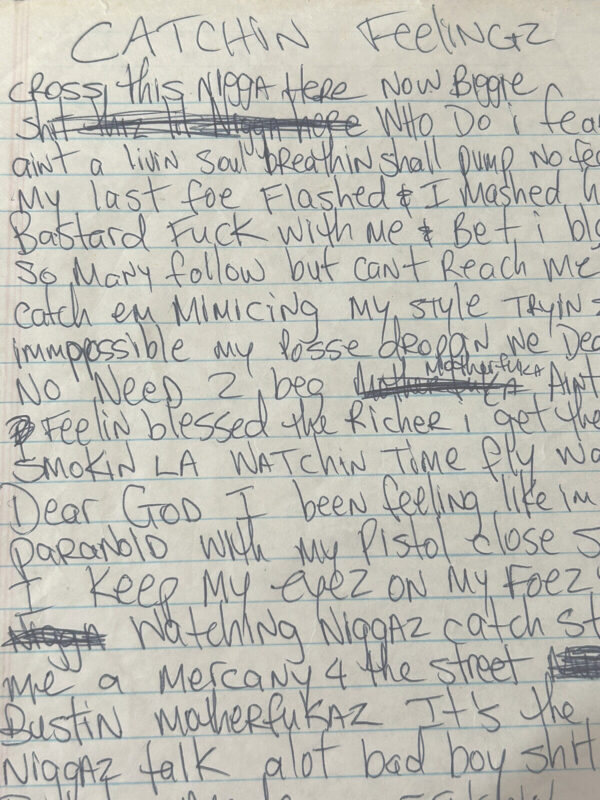 CATCHIN FeeliNGZ
CROSS this NiGGA HeRe NOW BiGGie
shit WHO DO i fear
aint a livin soul breathin shall pump NO
My last foe Flashed & I Mashed
BastaRD FUCK with Me & Bet i
SO MANY follow but can't Reach Me
catch em MiMiciNG MY style TRYIN
immpossible my Posse droppin we
NO NeeD 2 beg MotherfuKA AiNt
Feelin blessed the Richer i get the
SMOKIN LA WATCHIN TiMe fly
Dear GOD I been feeling like im
PARANOID with my Pistol close
I Keep MY eyez ON MY FOEZ
WatchiNG NiGGAZ catch
me a MeRcANY 4 the street
BustiN MotheRfuKAZ It's the
NiGGAZ talk alot bad boy shit